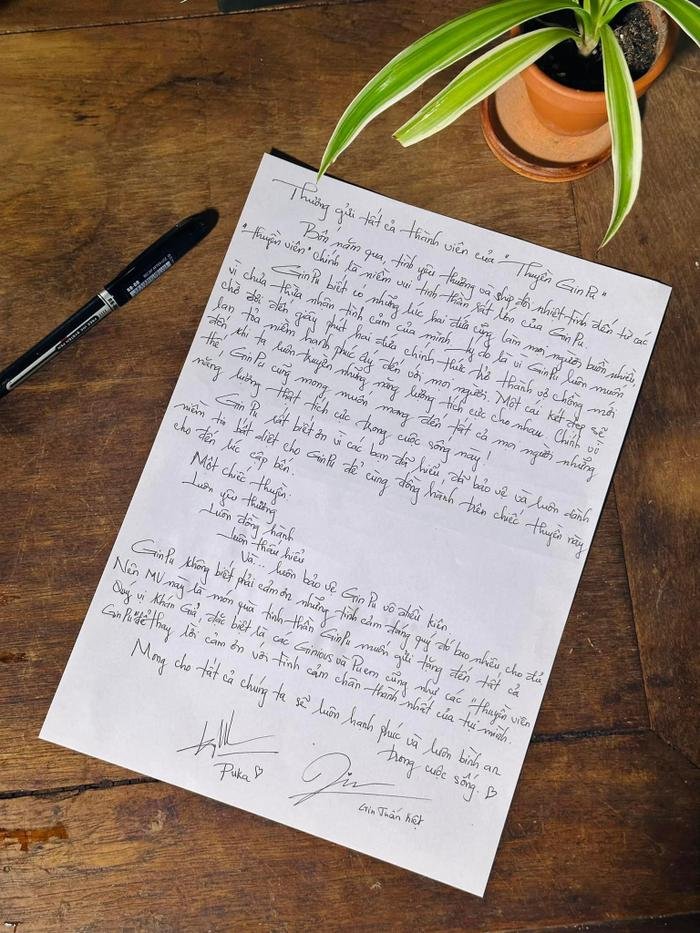 Thương gửi tất cả thành viên của "Thuyền GinPu"
Bốn năm qua, tình yêu thương và sự dõi nhiệt tình đến từ các
"thuyền viên" chính là niềm vui tinh thần rất lớn của GinPu.
GinPu biết có những lúc hai đứa cũng làm mọi người buồn nhiều
vì chưa thừa nhận tình cảm của mình. Lý do là vì GinPu luôn muốn
chờ đợi đến giây phút hai đứa chính thức trở thành vợ chồng mới
lan tỏa niềm hạnh phúc ấy đến với mọi người. Một cái kết đẹp sẽ
đến khi ta luôn truyền những năng lượng tích cực cho nhau. Chính vì
thế, GinPu cũng mong muốn mang đến tất cả mọi người những
năng lượng thật tích cực trong cuộc sống này!
GinPu rất biết ơn vì các bạn đã hiểu, đã bảo vệ và luôn dành
niềm tin bất diệt cho GinPu để cùng đồng hành trên chiếc thuyền này
cho đến lúc cập bến.
Một chiếc thuyền.
Luôn yêu thương
Luôn đồng hành
Luôn thấu hiểu
Và... luôn bảo vệ GinPu vô điều kiện.
GinPu không biết phải cảm ơn những tình cảm đáng quý đó bao nhiêu cho đủ
Nên MV này là món quà tinh thần GinPu muốn gửi tặng đến tất cả
Quý vị Khán Giả, đặc biệt là các Ginious và Puem cũng như các "thuyền viên
GinPu" để thay lời cảm ơn với tình cảm chân thành nhất của tụi mình.
Mong cho tất cả chúng ta sẽ luôn hạnh phúc và luôn bình an
trong cuộc sống. ♡
Puka ♡
Gin Tuấn Kiệt